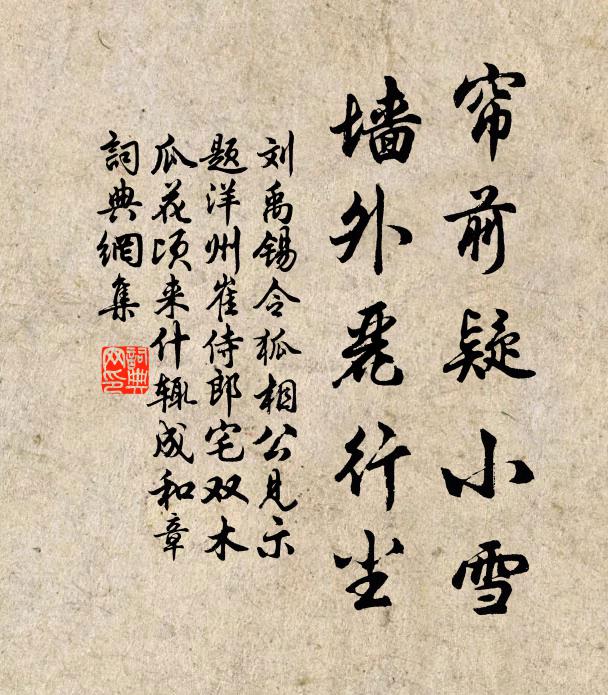 帘前疑小雪
墙外丽行尘
刘禹锡令狐相公见示
题洋州崔侍郎宅双木
瓜花顷来什辄成和章
詞典網集
詞典網印